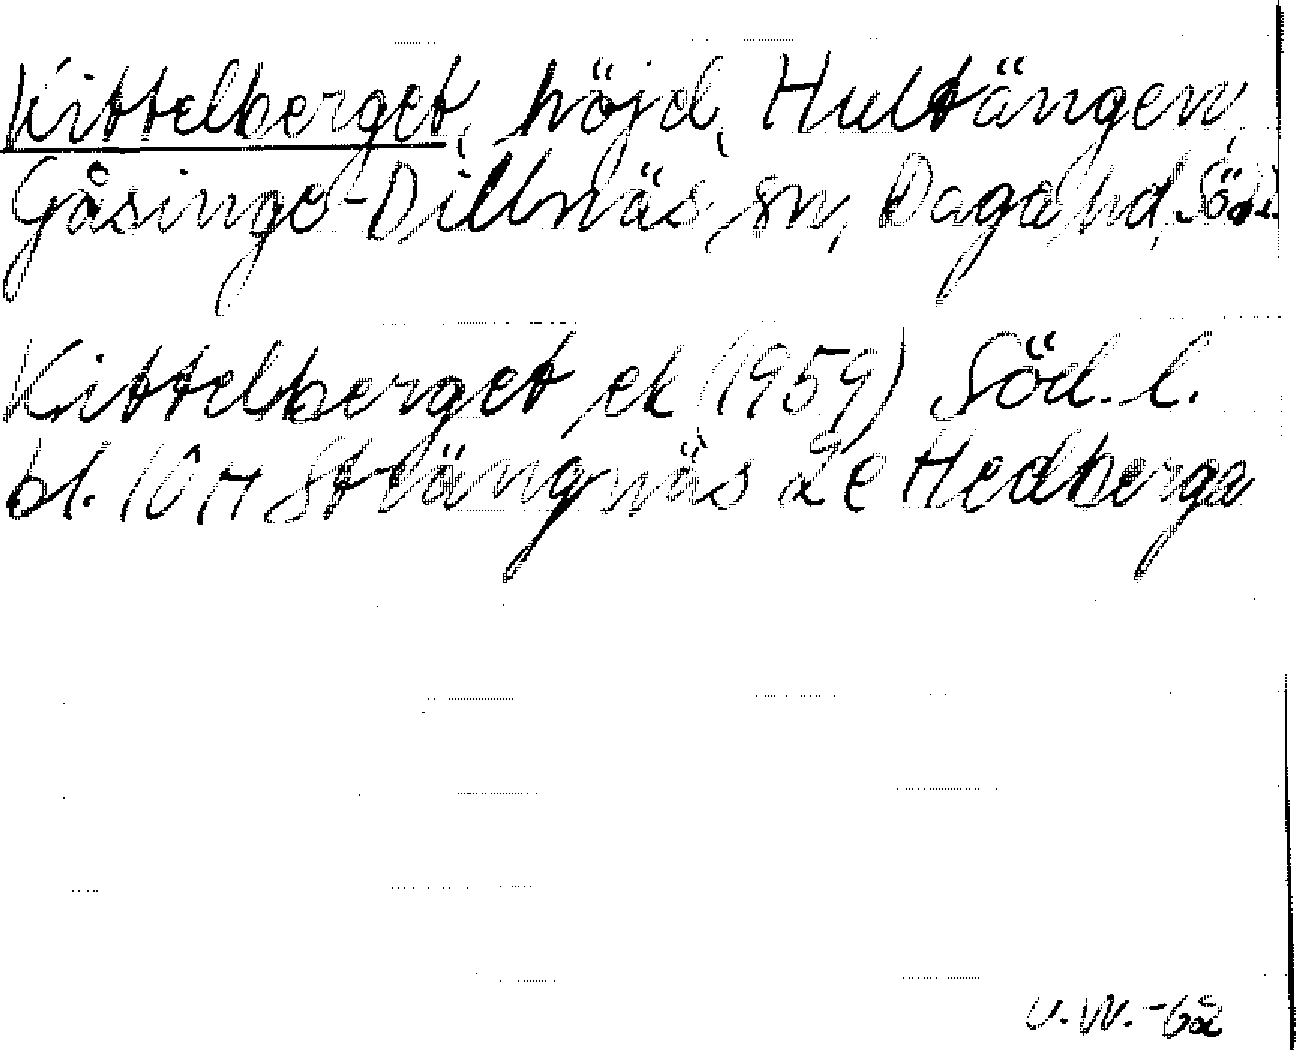 Kittelberget, höjd, Hultängen,
Gåsinge-Dillnäs sn, Daga hd, Söd.
Kittelberget ek (1959) Söd. l.
bl. 10 H Strängnäs 2e Hedberga
U.W. -62